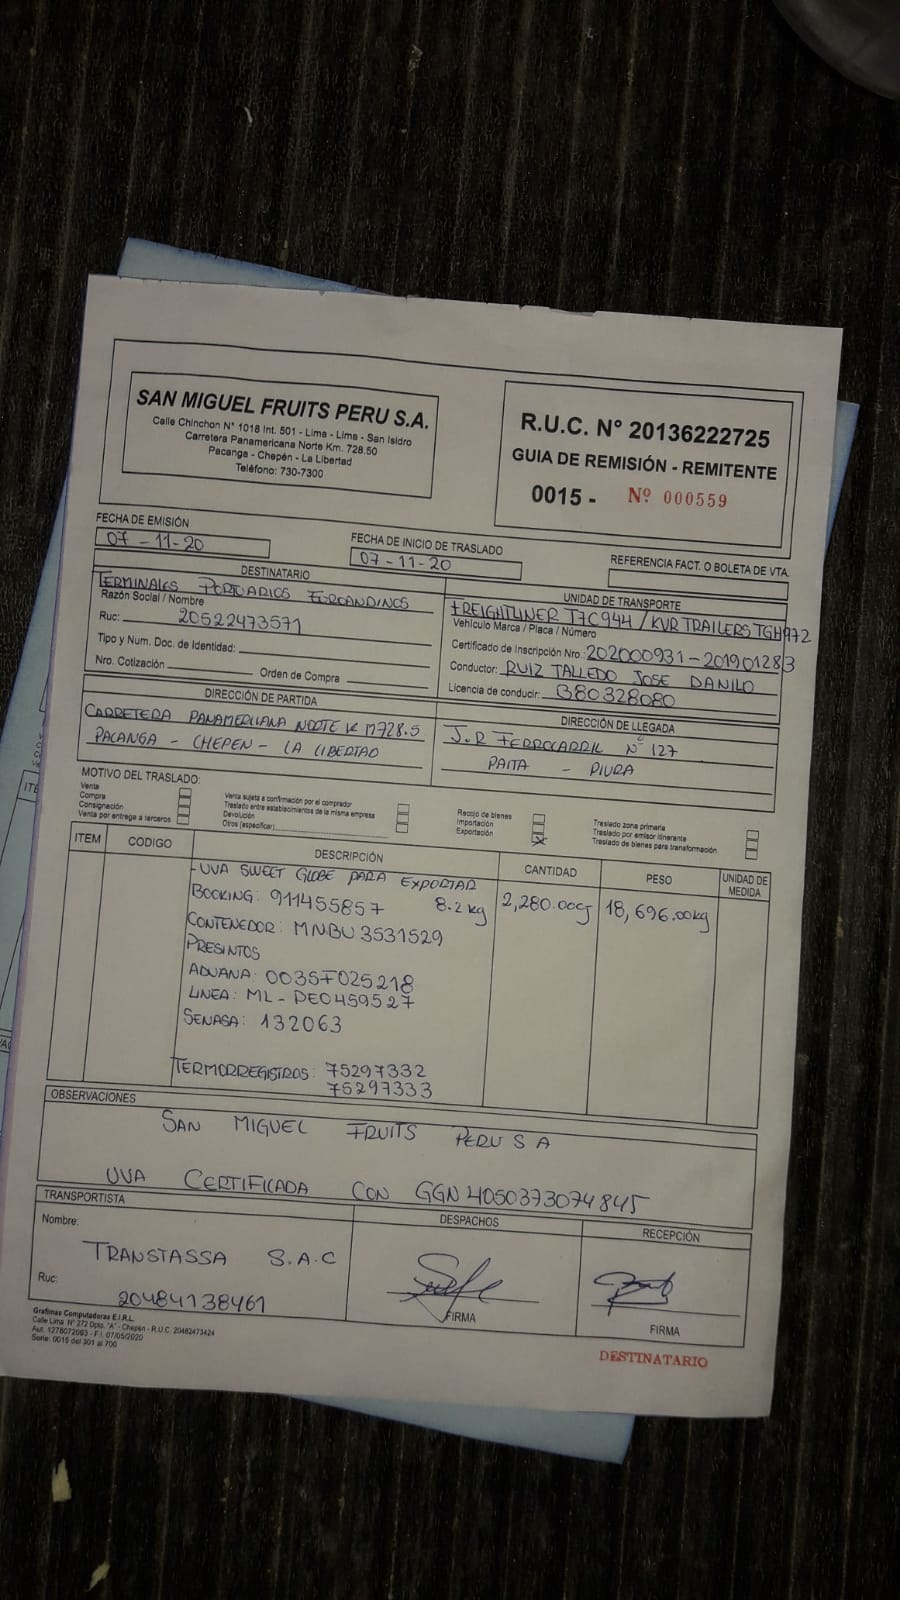 SAN MIGUEL FRUITS PERU S.A.
Calle Chinchon N° 1018 Int. 501 - Lima - Lima - San Isidro
Carretera Panamericana Norte Km. 728.50
Pacanga - Chepén - La Libertad
Teléfono: 730-7300
R.U.C. N° 20136222725
GUIA DE REMISIÓN - REMITENTE
0015 - Nº 000559
FECHA DE EMISIÓN
07-11-20
FECHA DE INICIO DE TRASLADO
07-11-20
REFERENCIA FACT. O BOLETA DE VTA.
DESTINATARIO
TERMINALES PORTUARIOS EUROANDINOS
Razón Social / Nombre
Ruc: 20522473571
Tipo y Num. Doc. de Identidad:
Nro. Cotización Orden de Compra
UNIDAD DE TRANSPORTE
FREIGHTLINER T7C944 / KVR TRAILERS TGH972
Vehículo Marca / Placa / Número
Certificado de Inscripción Nro.: 202000931-201901283
Conductor: RUIZ TALLEDO JOSE DANILO
Licencia de conducir: B80328080
DIRECCIÓN DE PARTIDA
CARRETERA PANAMERICANA NORTE KM728.5
PACANGA - CHEPEN - LA LIBERTAD
DIRECCIÓN DE LLEGADA
J.R FERROCARRIL N° 127
PAITA - PIURA
MOTIVO DEL TRASLADO:
Venta
Compra
Consignación
Venta por entrega a terceros
Venta sujeta a confirmación por el comprador
Traslado entre establecimientos de la misma empresa
Devolución
Otros (especificar)
Recojo de bienes
Importación
Exportación X
Traslado zona primaria
Traslado por emisor itinerante
Traslado de bienes para transformación
ITEM CODIGO DESCRIPCIÓN CANTIDAD PESO UNIDAD DE MEDIDA
- UVA SWEET GLOBE PARA EXPORTAR
8.2 kg 2,280.00cj 18,696.00kg
BOOKING: 911455857
CONTENEDOR: MNBU 3531529
PRESINTOS
ADUANA: 0035F025218
LINEA: ML-PE0459527
SENASA: 132063
TERMORREGISTROS: 75297332
75297333
OBSERVACIONES
SAN MIGUEL FRUITS PERU S A
UVA CERTIFICADA CON GGN 4050373074845
TRANSPORTISTA
Nombre:
TRANSTASSA S.A.C
Ruc: 20484138461
DESPACHOS
FIRMA
RECEPCIÓN
FIRMA
Grafimas Computadoras E.I.R.L.
Calle Lima N° 272 Dpto. "A" - Chepén - R.U.C. 20482473424
Aut. 1278072063 - F.I. 07/05/2020
Serie: 0015 del 301 al 700
DESTINATARIO